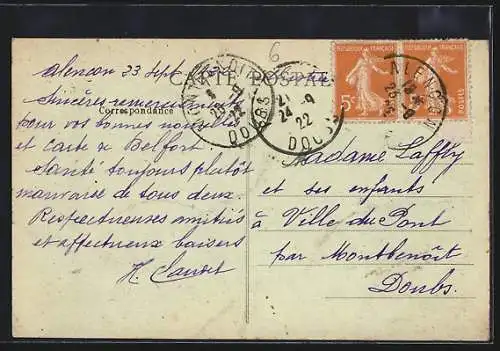 6
CARTE POSTALE
Correspondance
RÉPUBLIQUE FRANÇAISE
5c
POSTES
ALENÇON
DOUBS
24 -9
22
DOUBS
Alencon 23 Sept
Sincères remerciements
pour vos bonnes nouvelles
et carte de Belfort
Santé toujours plutôt
mauvaise de tous deux.
Respectueuses amitiés
et affectueux baisers
H.
Madame Laffly
et ses enfants
à Ville du Pont
par Montbenoît
Doubs.